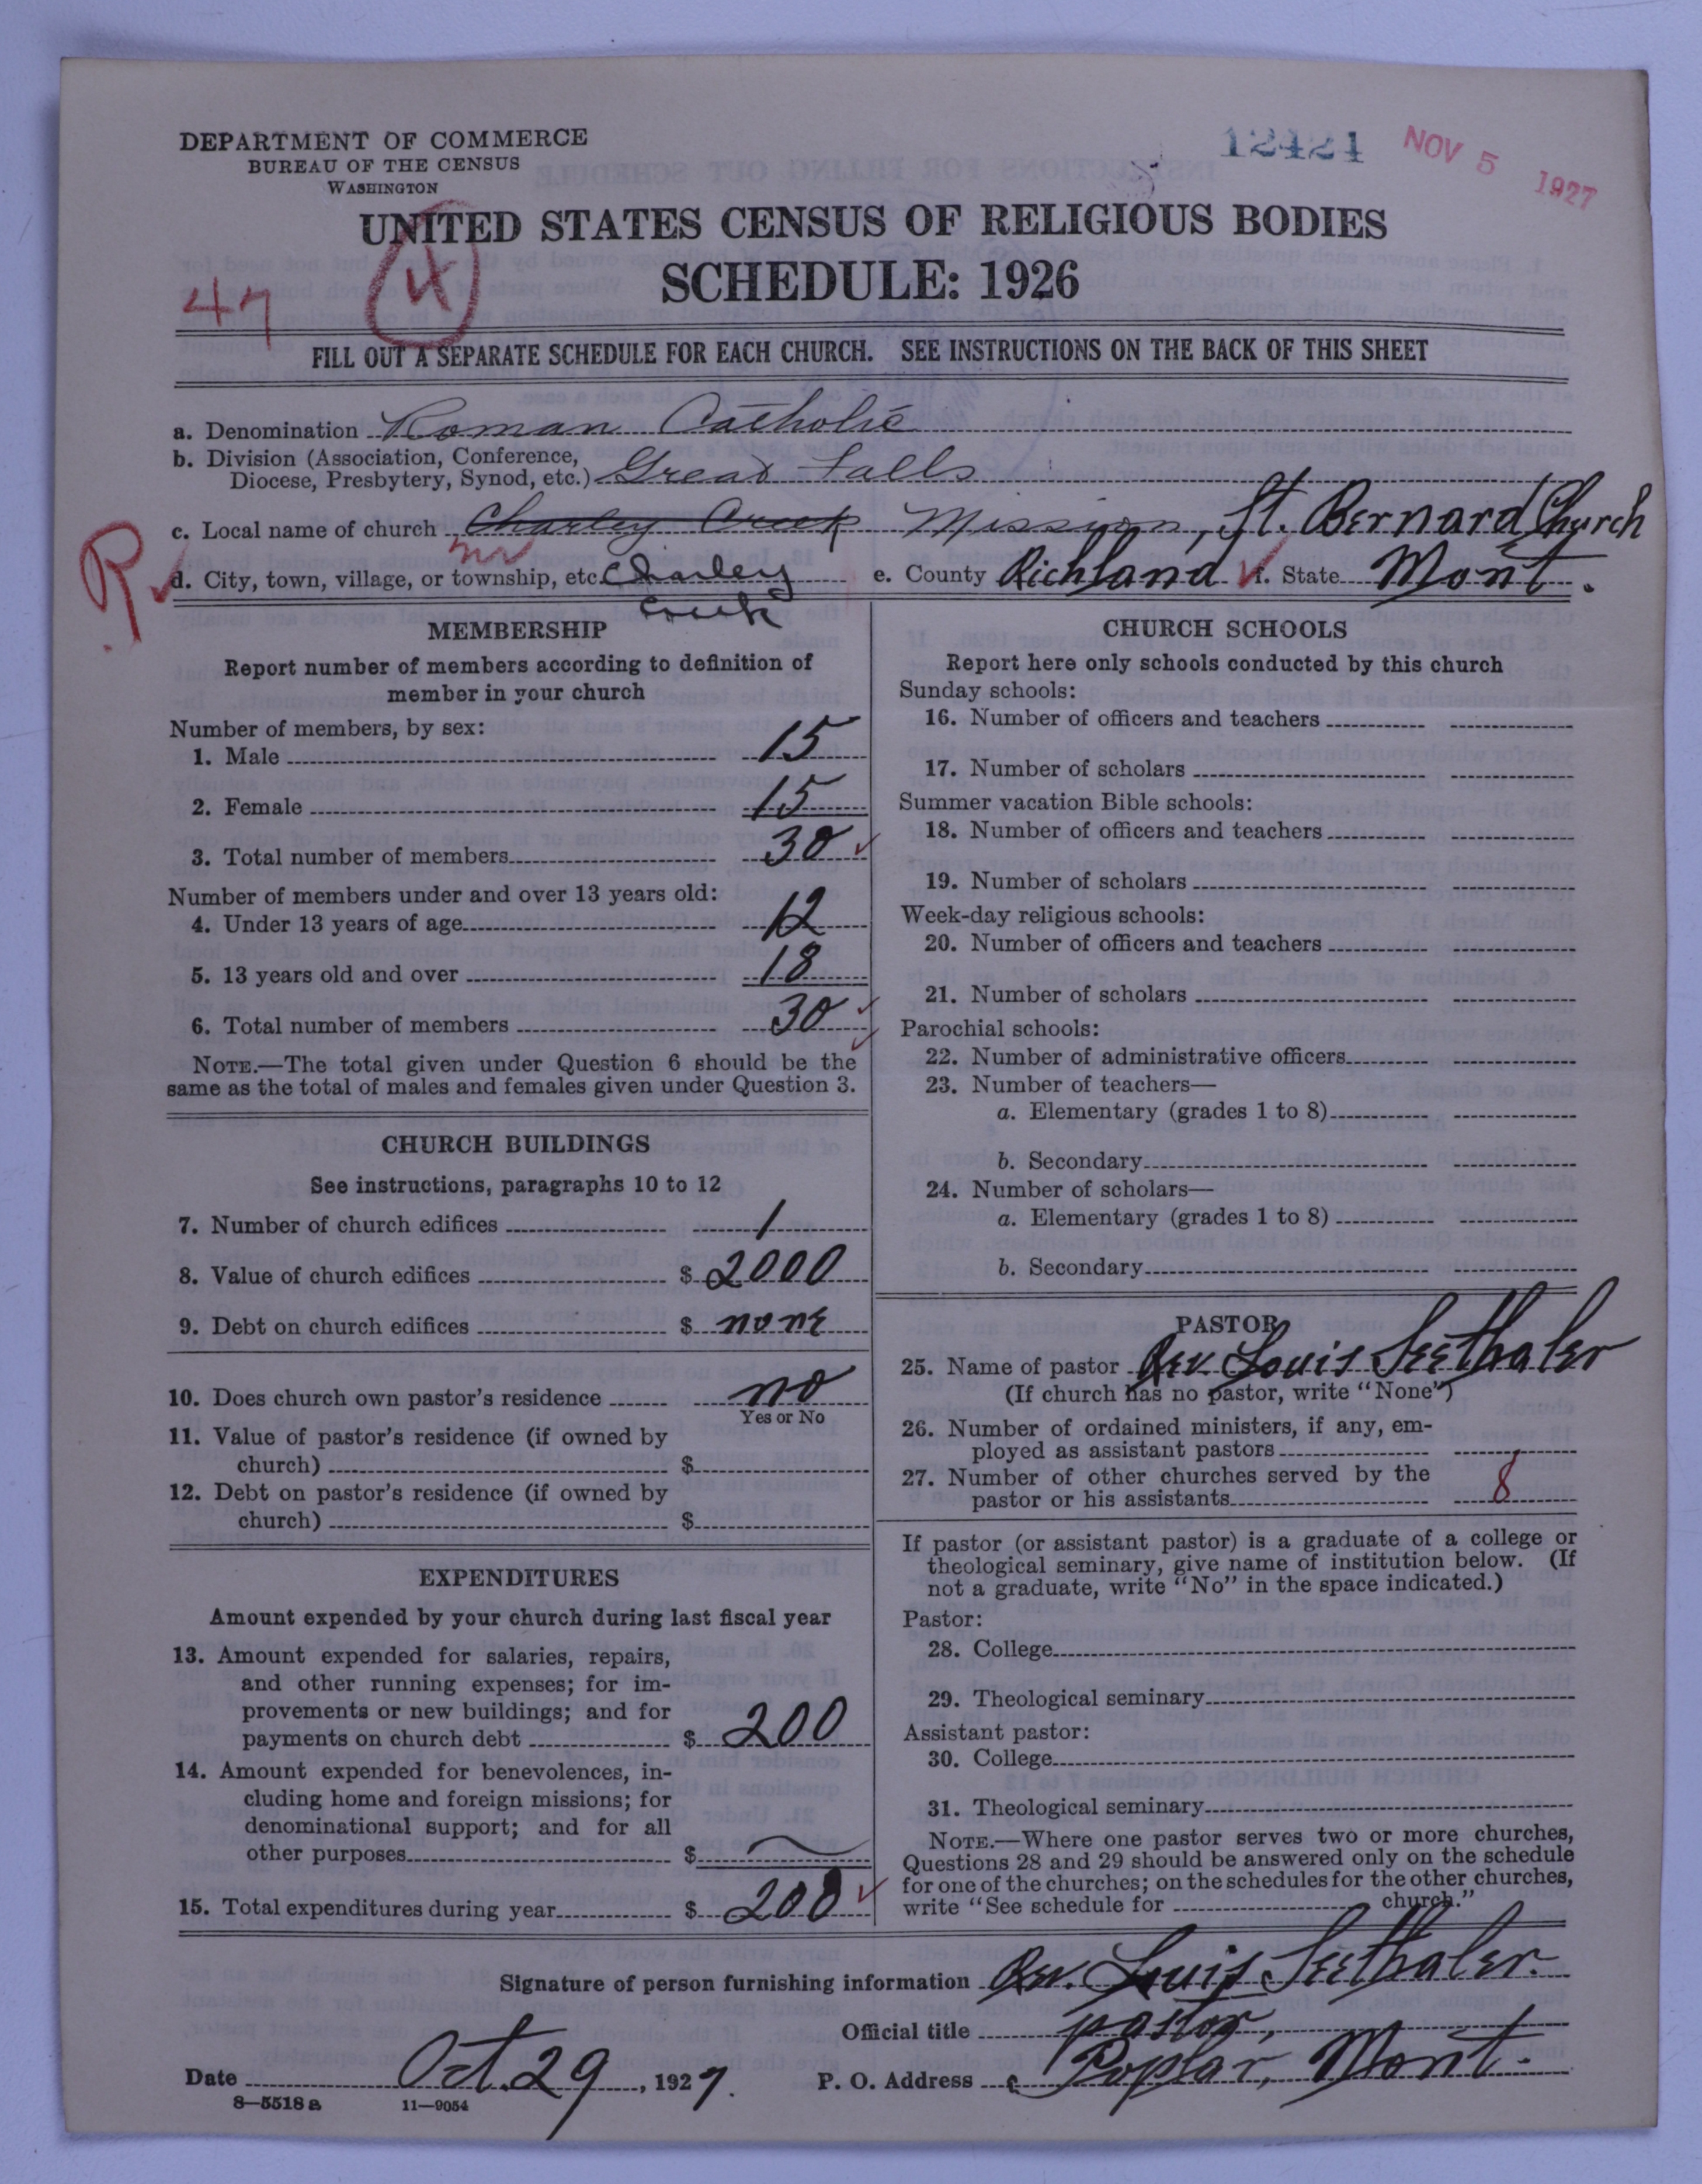 DEPARTMENT OF COMMERCE
BUREAU OF THE CENSUS
WASHINGTON
12424
NOV 5 1927
UNITED STATES CENSUS OF RELIGIOUS BODIES
SCHEDULE: 1926
47
4
FILL OUT A SEPARATE SCHEDULE FOR EACH CHURCH. SEE INSTRUCTIONS ON THE BACK OF THIS SHEET
a. Denomination Roman Catholic
b. Division (Association, Conference,
Diocese, Presbytery, Synod, etc.) Great Falls
c. Local name of church Charley Creek Mission, St. Bernard Church
R
d. City, town, village, or township, etc. Charley Creek e. County Richland f. State Mont.
MEMBERSHIP
Report number of members according to definition of
member in your church
Number of members, by sex:
1. Male 15
2. Female 15
3. Total number of members 30
Number of members under and over 13 years old:
4. Under 13 years of age 12
5. 13 years old and over 18
6. Total number of members 30
NOTE.—The total given under Question 6 should be the
same as the total of males and females given under Question 3.
CHURCH BUILDINGS
See instructions, paragraphs 10 to 12
7. Number of church edifices 1
8. Value of church edifices $ 2000
9. Debt on church edifices $ none
10. Does church own pastor's residence no
Yes or No
11. Value of pastor's residence (if owned by
church) $
12. Debt on pastor's residence (if owned by
church) $
EXPENDITURES
Amount expended by your church during last fiscal year
13. Amount expended for salaries, repairs,
and other running expenses; for im-
provements or new buildings; and for
payments on church debt $ 200
14. Amount expended for benevolences, in-
cluding home and foreign missions; for
denominational support; and for all
other purposes $
15. Total expenditures during year $ 200
CHURCH SCHOOLS
Report here only schools conducted by this church
Sunday schools:
16. Number of officers and teachers
17. Number of scholars
Summer vacation Bible schools:
18. Number of officers and teachers
19. Number of scholars
Week-day religious schools:
20. Number of officers and teachers
21. Number of scholars
Parochial schools:
22. Number of administrative officers
23. Number of teachers—
a. Elementary (grades 1 to 8)
b. Secondary
24. Number of scholars—
a. Elementary (grades 1 to 8)
b. Secondary
PASTOR
25. Name of pastor Rev. Louis Seethaler
(If church has no pastor, write "None")
26. Number of ordained ministers, if any, em-
ployed as assistant pastors
27. Number of other churches served by the
pastor or his assistants 8
If pastor (or assistant pastor) is a graduate of a college or
theological seminary, give name of institution below. (If
not a graduate, write "No" in the space indicated.)
Pastor:
28. College
29. Theological seminary
Assistant pastor:
30. College
31. Theological seminary
NOTE.—Where one pastor serves two or more churches,
Questions 28 and 29 should be answered only on the schedule
for one of the churches; on the schedules for the other churches,
write "See schedule for church."
Signature of person furnishing information Rev. Louis Seethaler.
Official title pastor,
Date Oct. 29, 1927. P. O. Address Poplar, Mont.
8—5518 a 11—9054